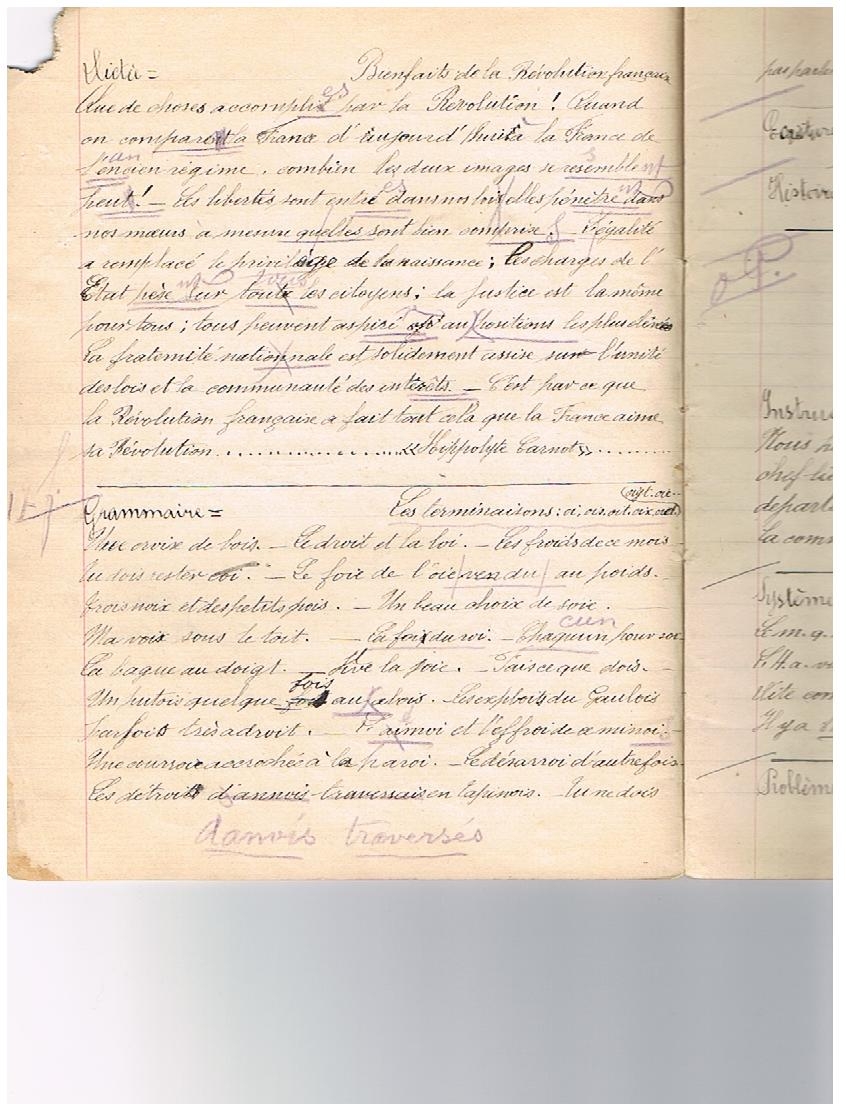 Dictée = Bienfaits de la Révolution française
es
Que de choses accomplis par la Révolution ! Quand
on comparent la France d'aujourd'hui à la France de
an
l'encien régime, combien les deux images se resemble
s nt
peut ! — Les libertés sont entré dans nos lois elles pénètre dans
es nt
nos mœurs à mesure quelles sont bien comprise. L'égalité
s
a remplacé le privilège de la naissance ; les charges de l'
nt tous
État pèse sur toute les citoyens ; la justice est la même
pour tous ; tous peuvent aspiré au positions les plus élevées
La fraternité nationnale est solidement assise sur l'unité
des lois et la communauté des intérêts. — C'est par ce que
la Révolution française a fait tout cela que la France aime
sa Révolution .................. « Hippolyte Carnot » .........
oigt. oie
Grammaire = Les terminaisons : oi, ois, oit, oix, oid.
Une croix de bois. — Le droit et la loi. — Les froids de ce mois
Tu dois rester coi. — Le foie de l'oie vendu au poids.
Trois noix et des petits pois. — Un beau choix de soie.
cun
Ma voix sous le toit. — La foi du roi. — Chaquin pour soi
La bague au doigt. — Vive la joie. — Fais ce que dois.
fois
Un putois quelque fois aux abois. Les exploits du Gaulois
parfois très adroit. — et l'effroi de ce minoi.
s
Une courroie accrochée à la paroi. — Le désarroi d'autrefois
Les détroits d'annois traversais en tapinois. — Tu ne dois
danois traversés
Histoire
Instruc
Nous
chef-lie
départe
La comm
Système
Le m. q.
Il y a
Problème